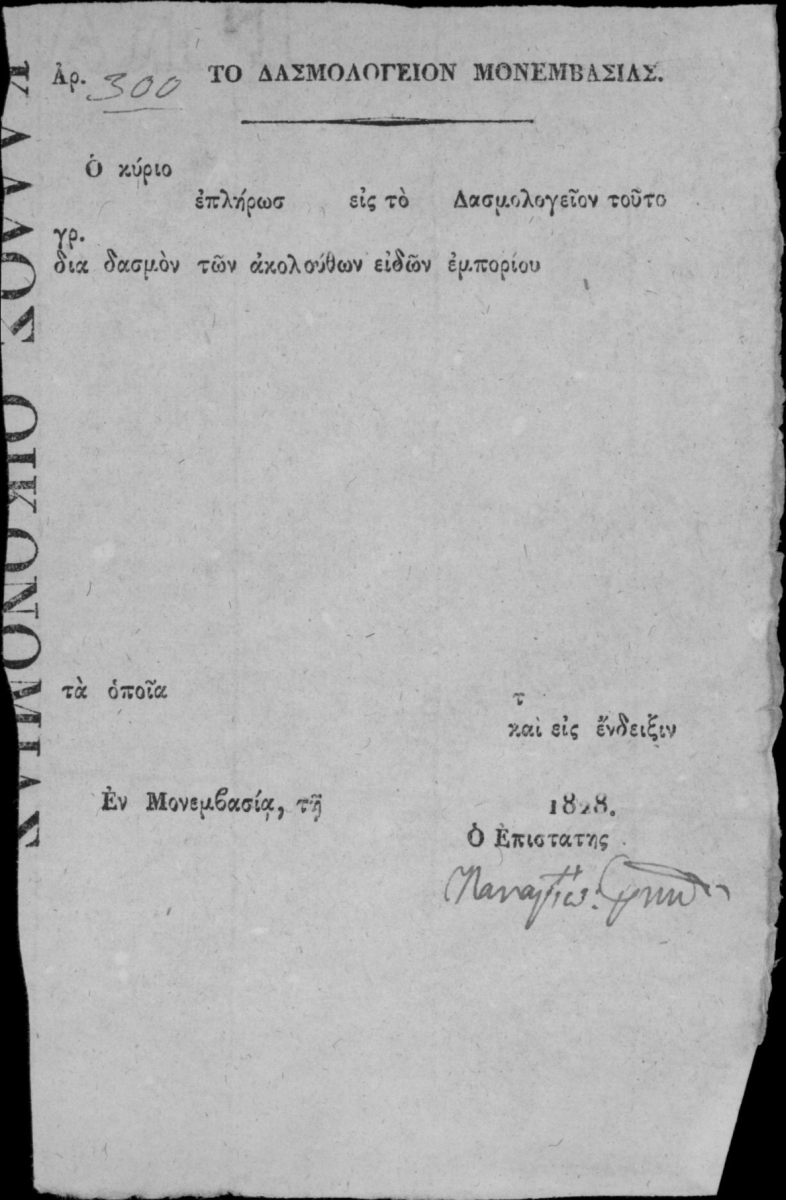 Ἀρ. 300 ΤΟ ΔΑΣΜΟΛΟΓΕΙΟΝ ΜΟΝΕΜΒΑΣΙΑΣ.
Ὁ κύριο
ἐπλήρωσ εἰς τὸ Δασμολογεῖον τοῦτο
γρ.
δια δασμὸν τῶν ἀκολούθων εἰδῶν ἐμπορίου
τὰ ὁποῖα τ
καὶ εἰς ἔνδειξιν
Ἐν Μονεμβασίᾳ, τῇ 1828.
Ὁ Ἐπιστατης
ΟΙΚΟΝΟΜΙΑΣ